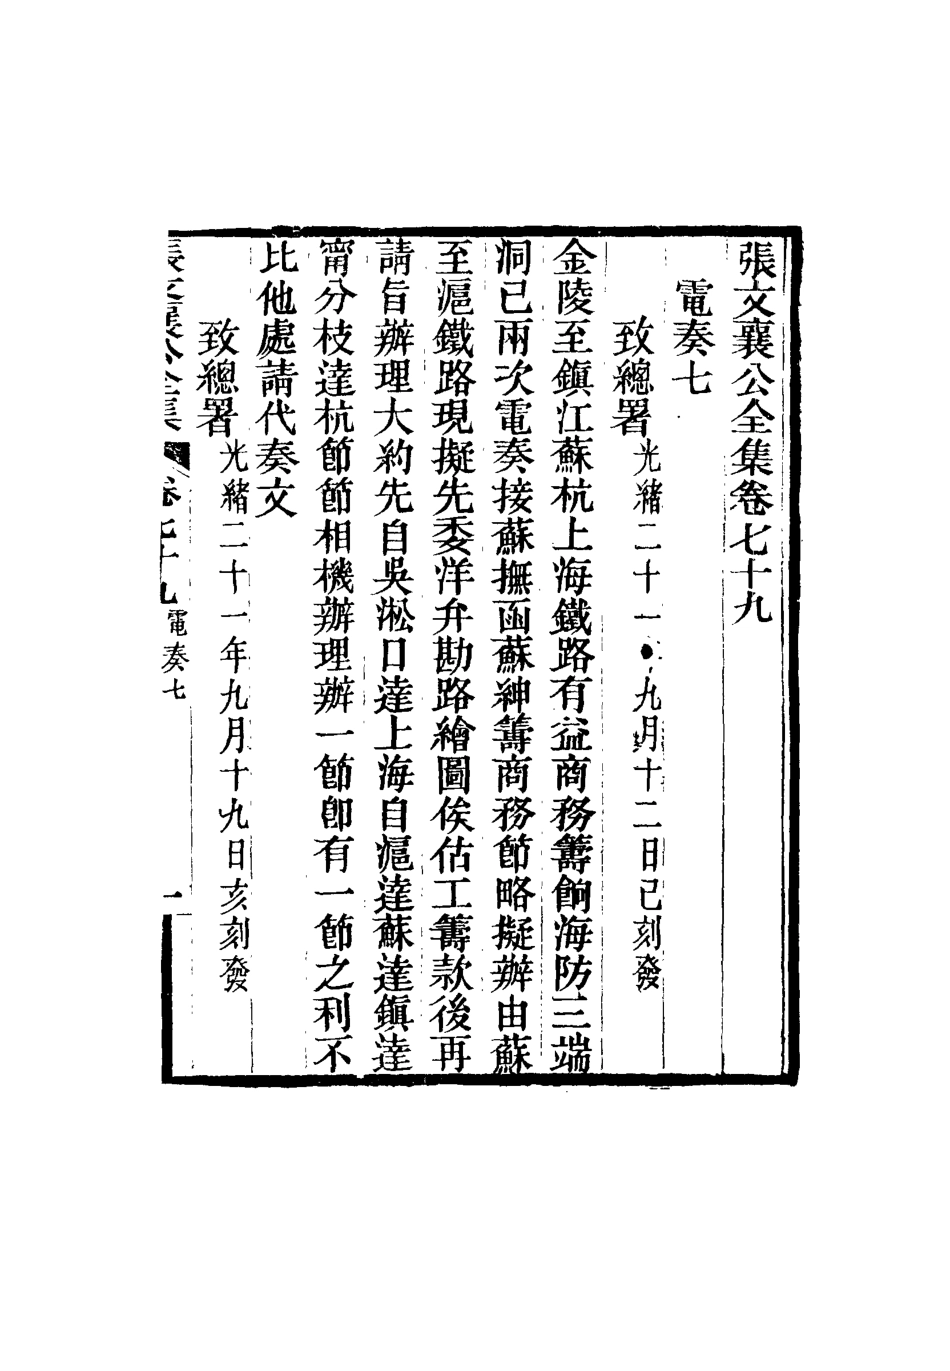 張文襄公全集卷七十九
電奏七
致總署光緒二十一 九月十二日巳刻發
金陵至鎮江蘇杭上海鐵路有益商務籌餉海防三端
洞已兩次電奏接蘇撫函蘇紳籌商務節略擬辦由蘇
至滬鐵路現擬先委洋弁勘路繪圖俟估工籌款後再
請旨辦理大約先自吳淞口達上海自滬達蘇達鎮達
甯分枝達杭節節相機辦理辦一節卽有一節之利不
比他處請代奏文
致總署光緒二十一年九月十九日亥刻發
張文襄公全集 卷七十九 電奏七 一